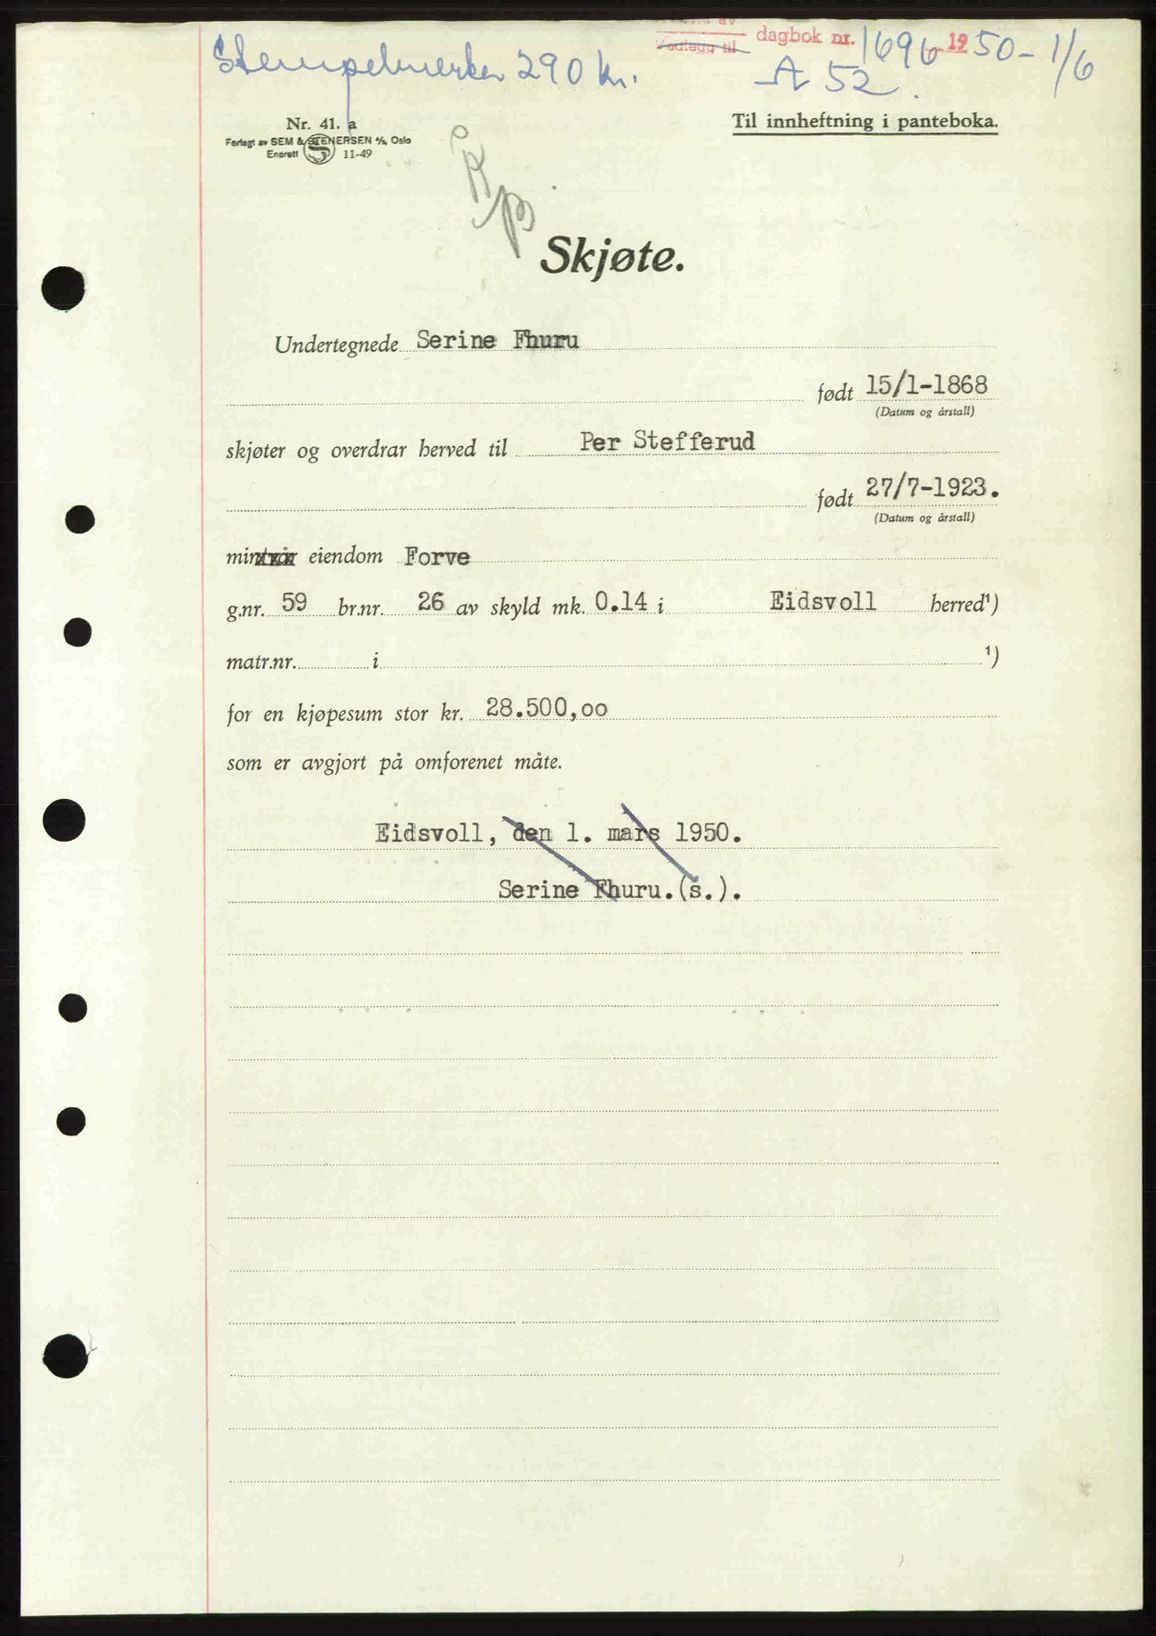 Stempelmerker 290 kr.
Vedlegg til
dagbok nr. 1696 1950 - 1/6
A 52.
Nr. 41. a
Forlagt av SEM & STENERSEN A/S, Oslo
Enerett S 11-49
Til innheftning i panteboka.
Skjøte.
Undertegnede Serine Fhuru
født 15/1-1868
(Datum og årstall)
skjøter og overdrar herved til Per Stefferud
født 27/7-1923.
(Datum og årstall)
min eiendom Forve
g.nr. 59 br.nr. 26 av skyld mk. 0.14 i Eidsvoll herred¹)
matr.nr. i ¹)
for en kjøpesum stor kr. 28.500,oo
som er avgjort på omforenet måte.
Eidsvoll, den 1. mars 1950.
Serine Fhuru.(s.).